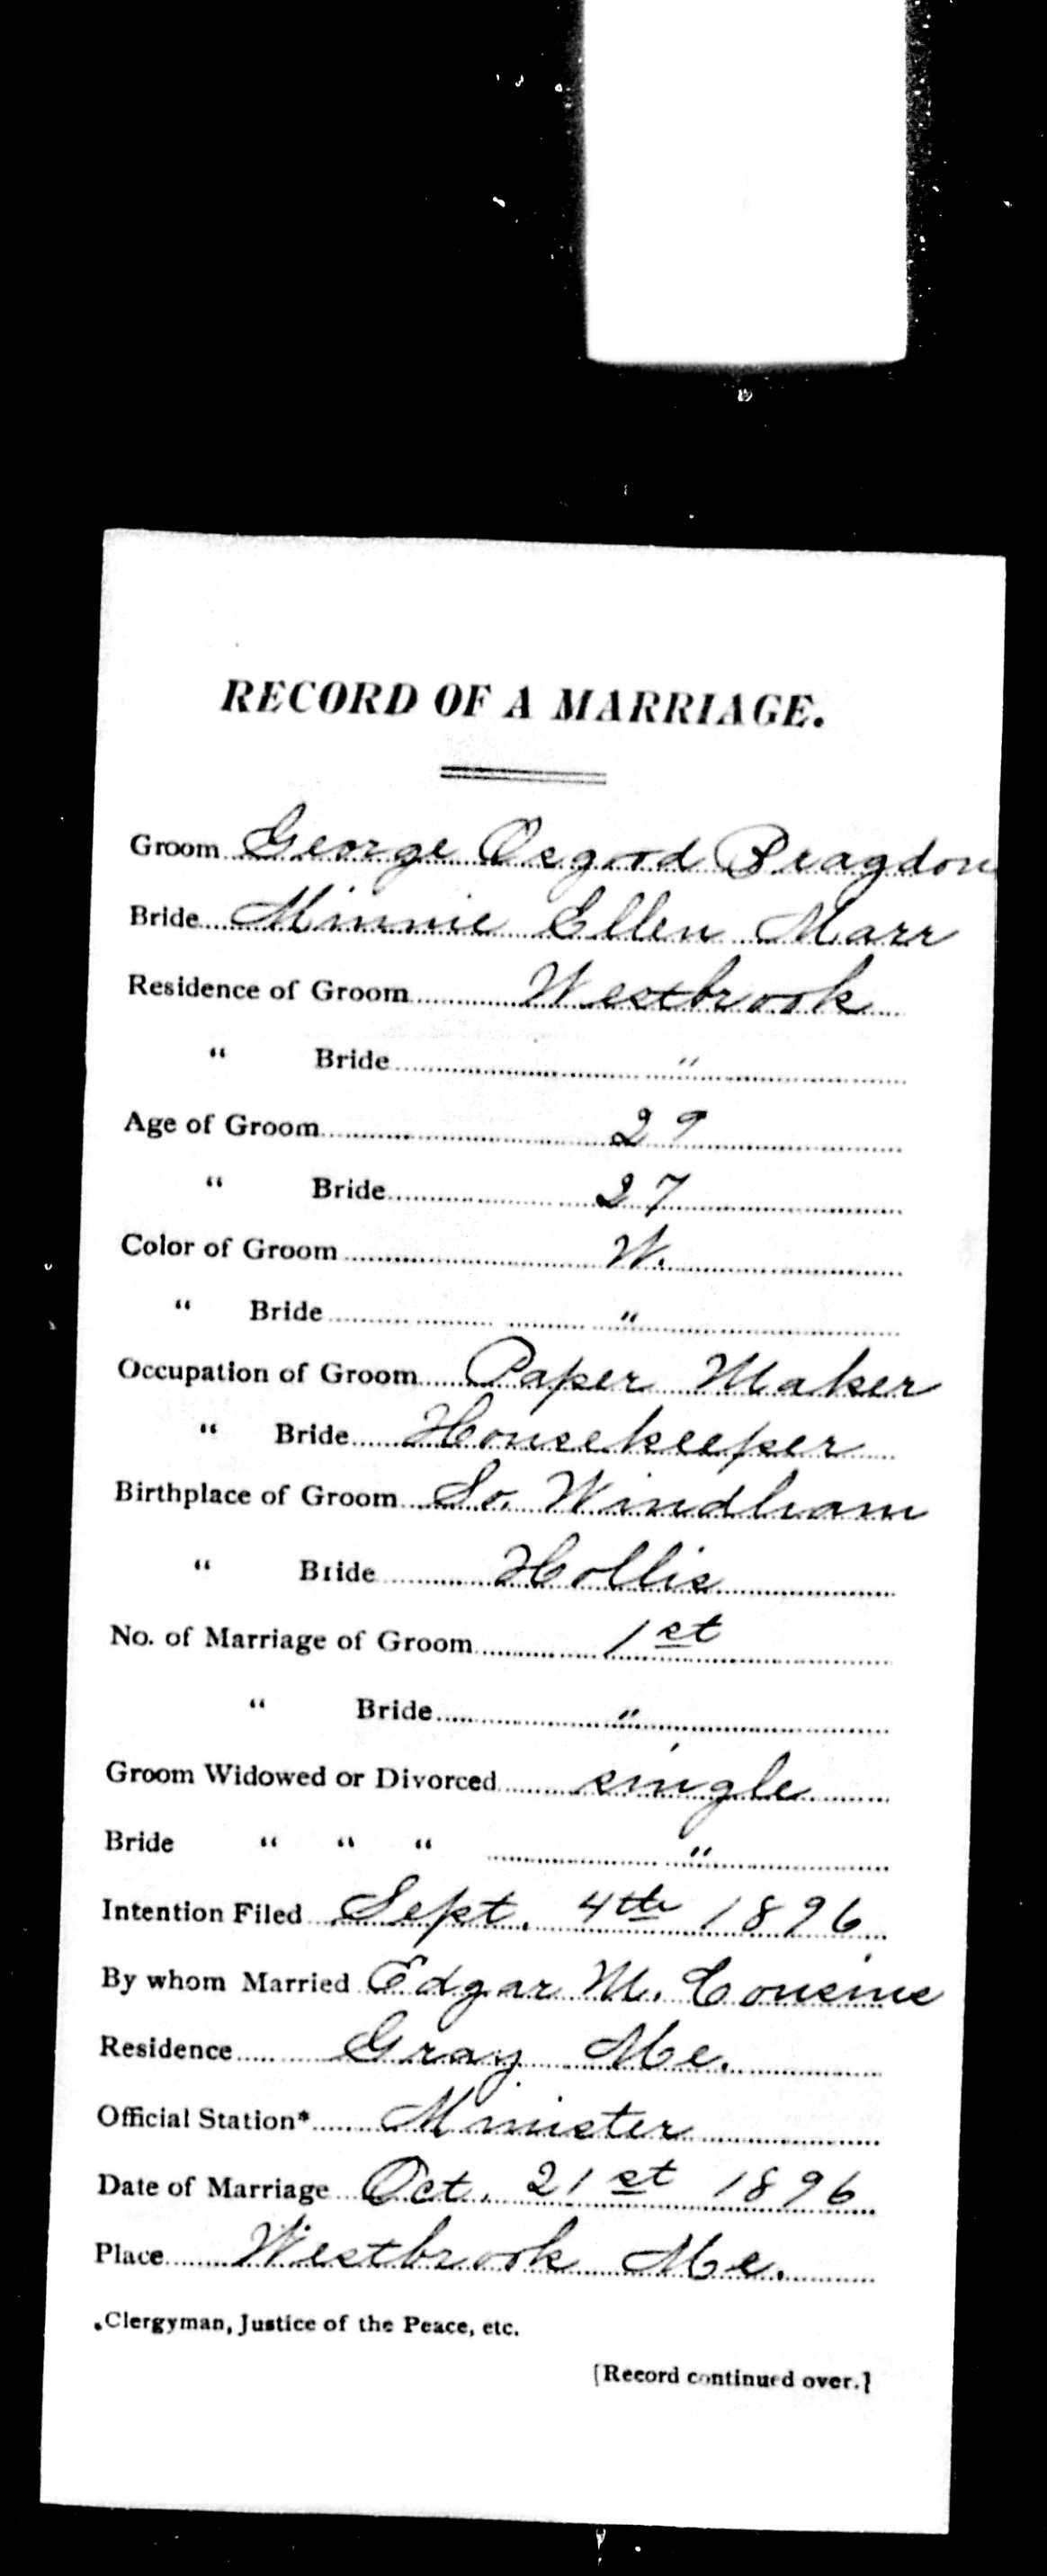 RECORD OF A MARRIAGE.
Groom George Osgood Bragdon
Bride Minnie Ellen Marr
Residence of Groom Westbrook
" Bride "
Age of Groom 29
" Bride 27
Color of Groom W.
" Bride "
Occupation of Groom Paper Maker
" Bride Housekeeper
Birthplace of Groom So. Windham
" Bride Hollis
No. of Marriage of Groom 1st
" Bride "
Groom Widowed or Divorced single
Bride " " " "
Intention Filed Sept. 4th 1896
By whom Married Edgar M. Cousins
Residence Gray Me.
Official Station* Minister
Date of Marriage Oct. 21st 1896
Place Westbrook Me.
*Clergyman, Justice of the Peace, etc.
[Record continued over.]